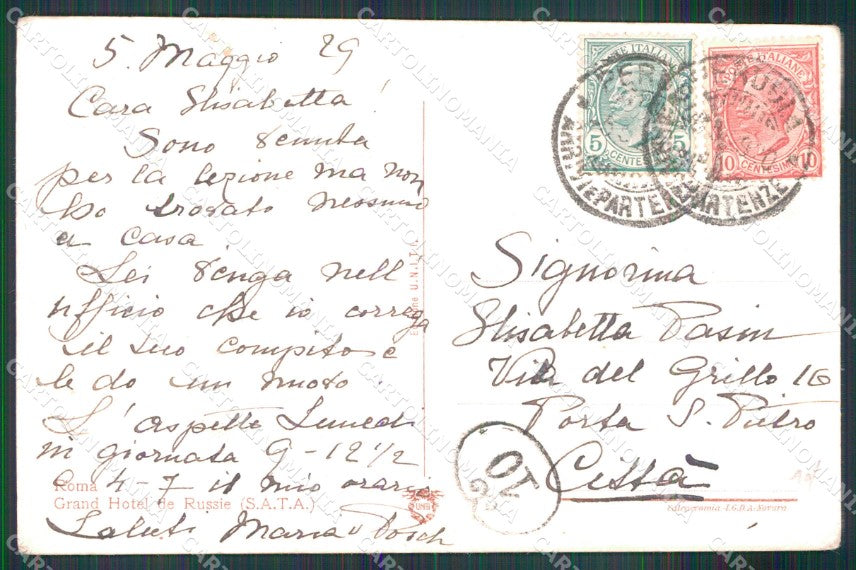 5. Maggio 29
Cara Elisabetta!
Sono venuta
per la lezione ma non
ho trovato nessuno
a casa
Lei venga nell'
ufficio che io corregga
il suo compito e
le do un nuovo.
L'aspetto Lunedi
in giornata 9-12 1/2
e 4-7 il mio orario
Saluti Maria
Roma
Grand Hotel de Russie (S.A.T.A.)
POSTE ITALIANE
5 5
CENTESIMI
POSTE ITALIANE
10 10
CENTESIMI
PARTENZE
Signorina
Elisabetta Pasin
Via del Grillo 16
Porta S. Pietro
Città
CARTOLINOMANIA